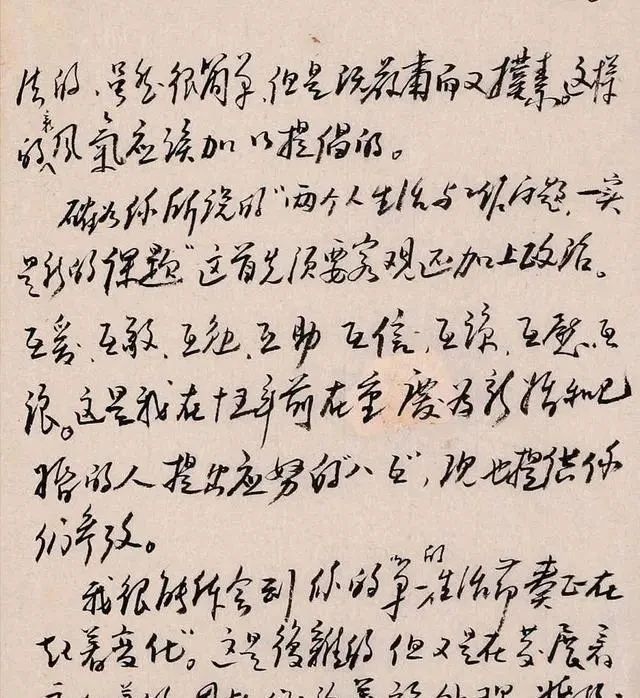 法的,虽然很简单,但是既严肃而又朴素。这样
的风气应该加以提倡的。
确如你所说的"两个人生活与工作问题,一实
是新的课题"这首先须要客观还加上政治。
互爱,互敬,互勉,互助,互信,互谅,互慰,互
让。这是我在十五年前在重庆为新婚和已
婚的人提出应努的"八互",现也提供你
们参考。
我很能体会到你的"单一的生活节奏正在
起着变化"。这是复杂的但又是在发展着